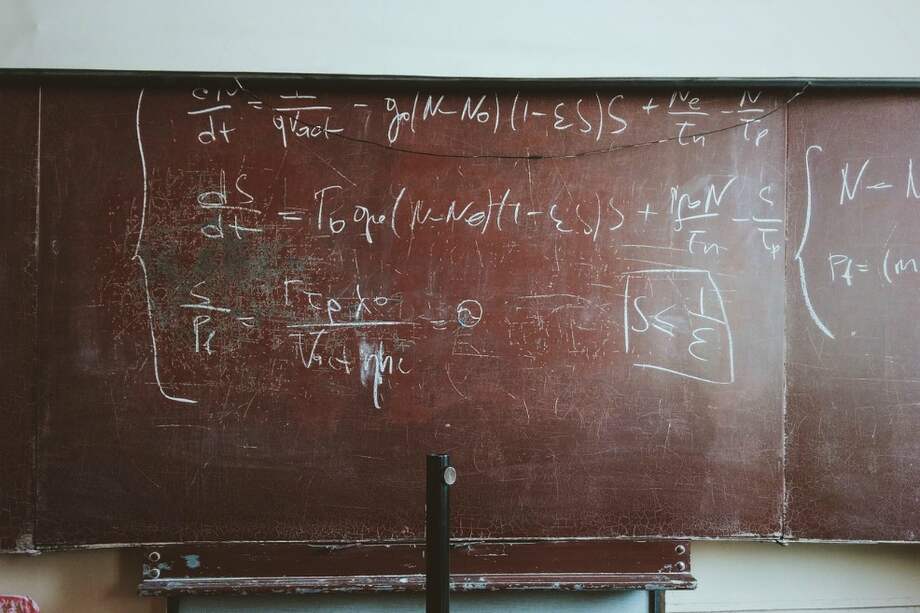 dN/dt = I/qVact - g0(N-N0)(1-εS)S + Ne/τn - N/τp
dS/dt = Γ0 g0(N-N0)(1-εS)S + N/τn - S/τp
S/Pf = Γτpλ0/Vact ηhc =
S ≤ 1/ε
N =
Pf = (m